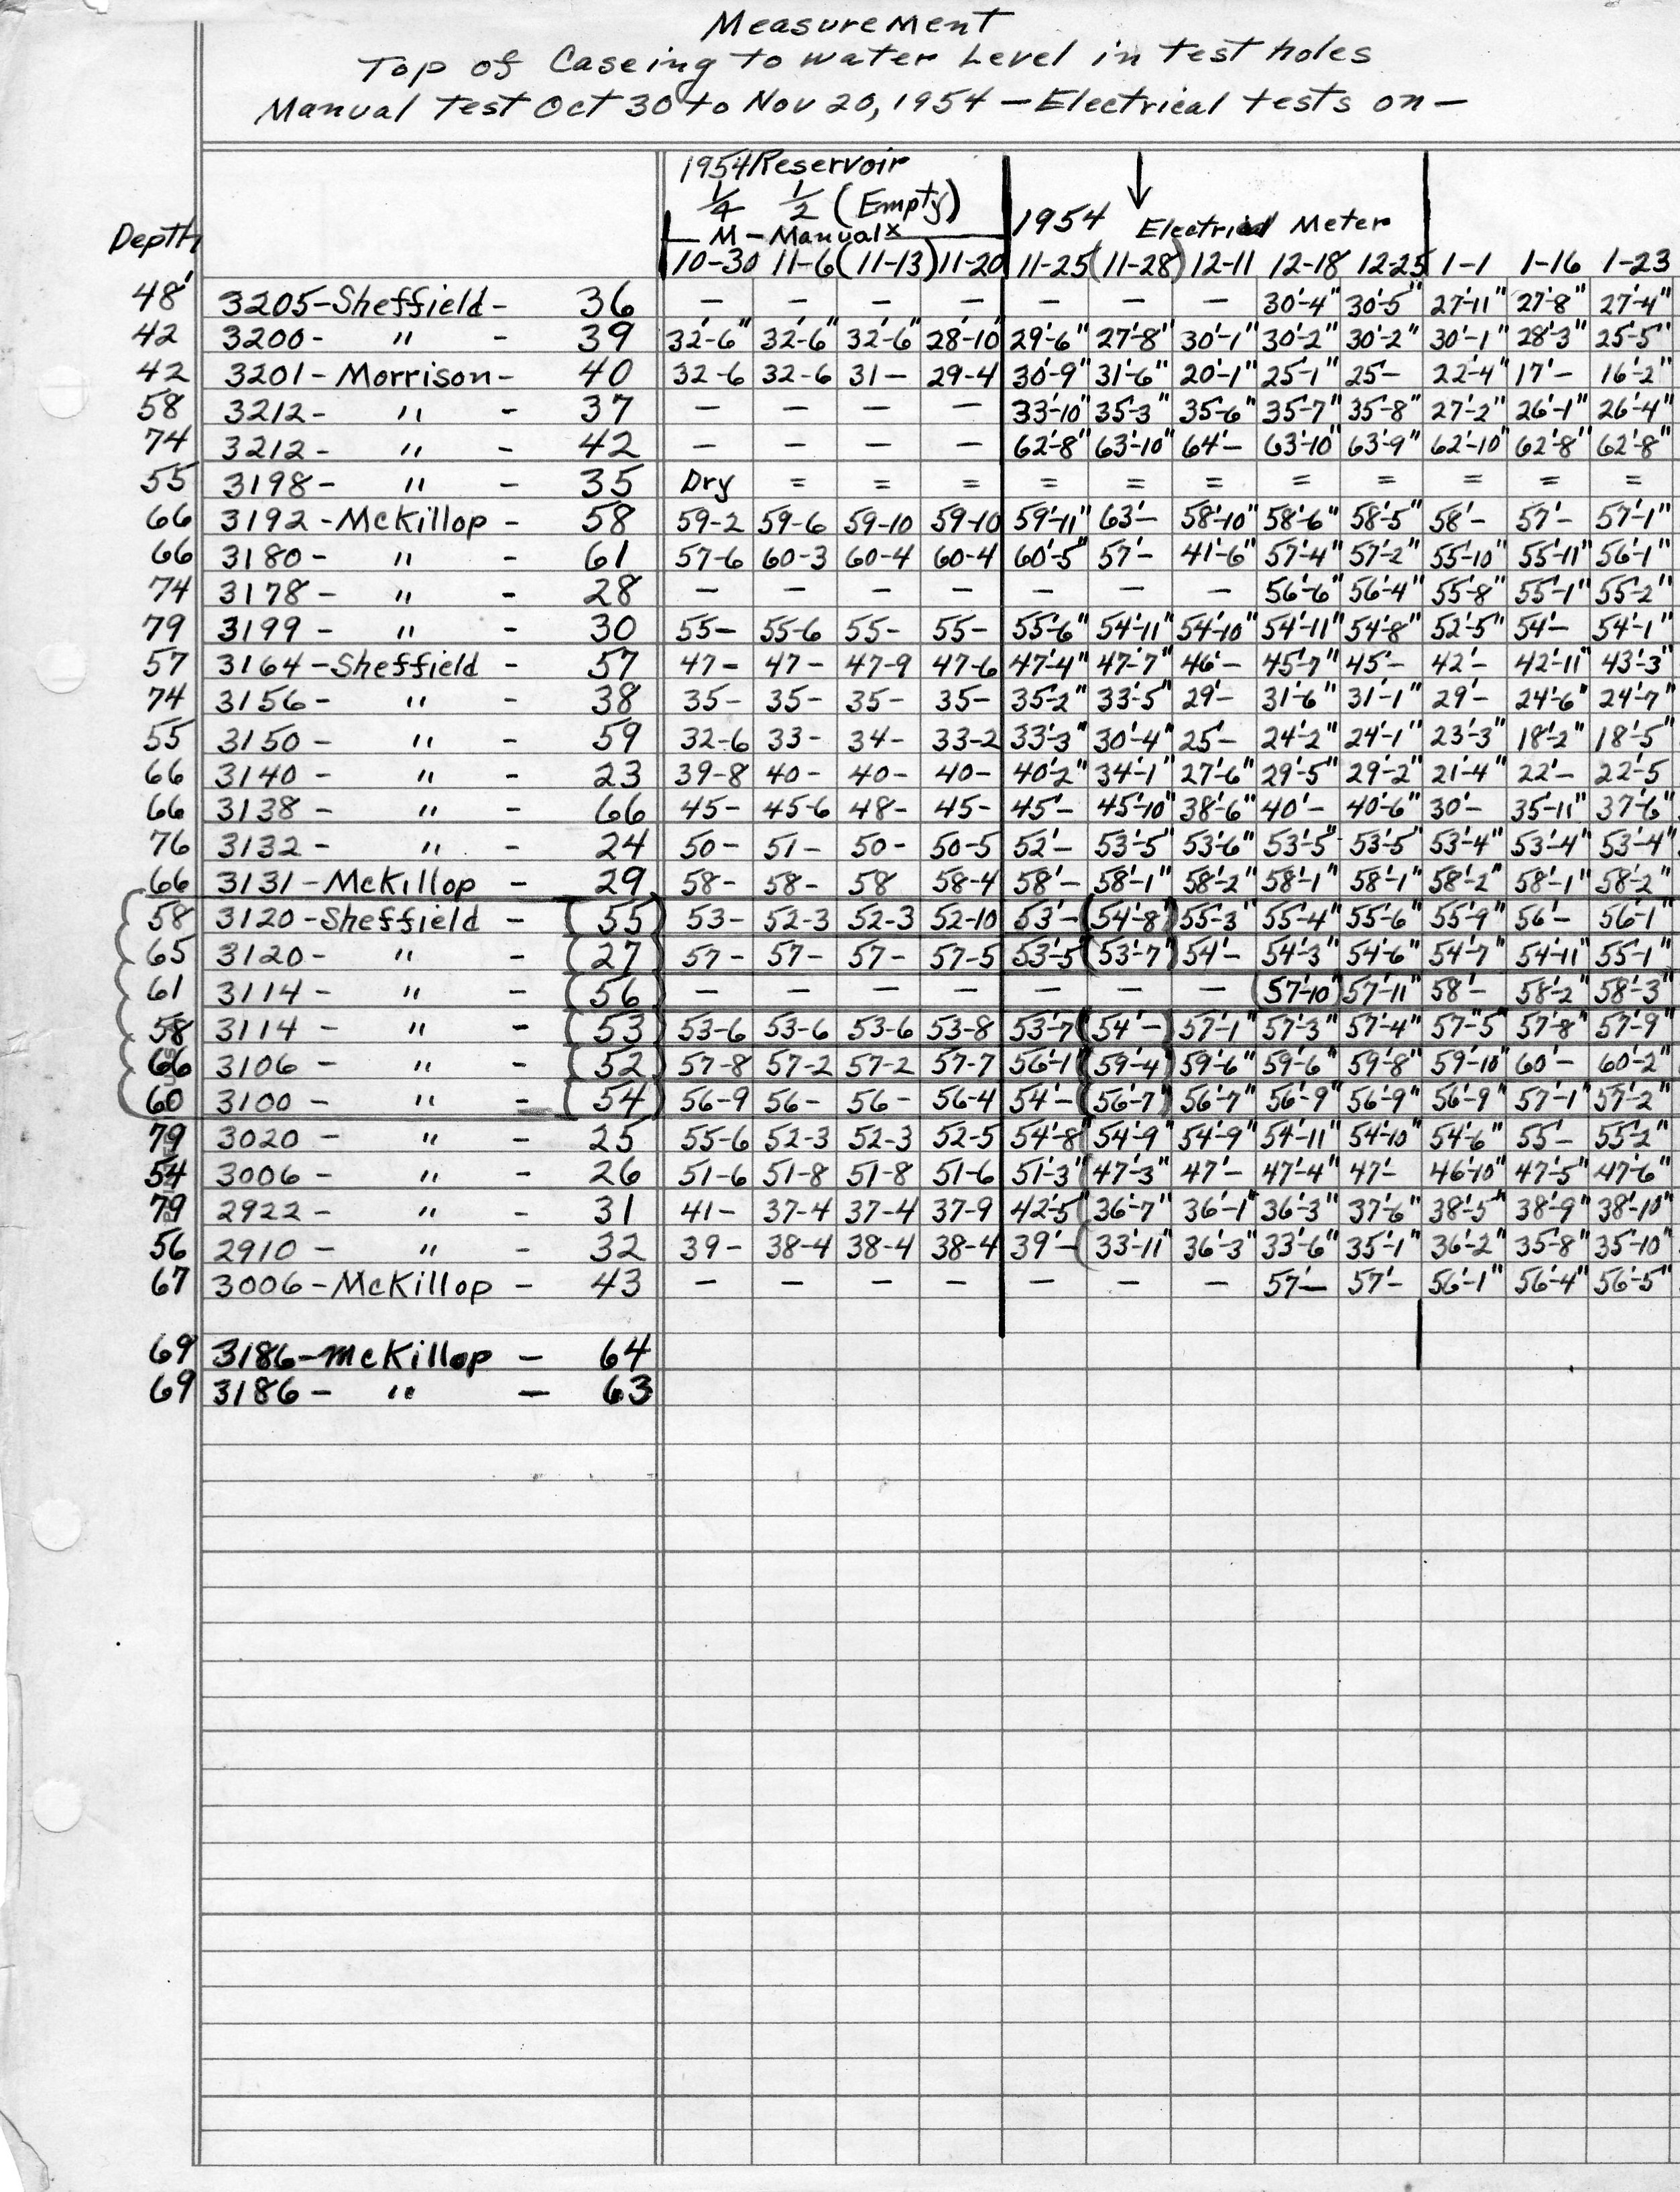 Measurement
Top of Caseing to water Level in test holes
Manual test Oct 30 to Nov 20, 1954 - Electrical tests on -
1954 Reservoir
1/4 1/2 (Empty)
Depth M - Manual x 1954 Electrical Meter
10-30 11-6 (11-13) 11-20 11-25 (11-28) 12-11 12-18 12-25 1-1 1-16 1-23
48' 3205-Sheffield- 36 - - - - - - - 30'-4" 30'-5" 27'-11" 27'-8" 27'-4"
42 3200- " - 39 32'-6" 32'-6" 32'-6" 28'-10' 29'-6" 27'-8" 30'-1" 30'-2" 30'-2" 30'-1" 28'-3" 25'-5"
42 3201-Morrison- 40 32-6 32-6 31- 29-4 30'-9" 31'-6" 20'-1" 25'-1" 25- 22'-4" 17'- 16'-2"
58 3212- " - 37 - - - - 33'-10" 35'-3" 35'-6" 35'-7" 35'-8" 27'-2" 26'-1" 26'-4"
74 3212- " - 42 - - - - 62'-8" 63'-10" 64'- 63'-10" 63'-9" 62'-10" 62'-8" 62'-8"
55 3198- " - 35 Dry = = = = = = = = = = =
66 3192-McKillop- 58 59-2 59-6 59-10 59-10 59'-11" 63'- 58'-10" 58'-6" 58'-5" 58'- 57'- 57'-1"
66 3180- " - 61 57-6 60-3 60-4 60-4 60'-5" 57'- 41'-6" 57'-4" 57'-2" 55'-10" 55'-11" 56'-1"
74 3178- " - 28 - - - - - - - 56'-6" 56'-4" 55'-8" 55'-1" 55'-2"
79 3199- " - 30 55- 55-6 55- 55- 55'-6" 54'-11" 54'-10" 54'-11" 54'-8" 52'-5" 54'- 54'-1"
57 3164-Sheffield - 57 47- 47- 47-9 47-6 47'-4" 47'-7" 46'- 45'-7" 45'- 42'- 42'-11" 43'-3"
74 3156- " - 38 35- 35- 35- 35- 35'-2" 33'-5" 29'- 31'-6" 31'-1" 29'- 24'-6" 24'-7"
55 3150- " - 59 32-6 33- 34- 33-2 33'-3" 30'-4" 25'- 24'-2" 24'-1" 23'-3" 18'-2" 18'-5"
66 3140- " - 23 39-8 40- 40- 40- 40'-2" 34'-1" 27'-6" 29'-5" 29'-2" 21'-4" 22'- 22'-5
66 3138- " - 66 45- 45-6 48- 45- 45'- 45'-10" 38'-6" 40'- 40'-6" 30'- 35'-11" 37'-6"
76 3132- " - 24 50- 51- 50- 50-5 52'- 53'-5" 53'-6" 53'-5" 53'-5" 53'-4" 53'-4" 53'-4"
66 3131-McKillop - 29 58- 58- 58 58-4 58'- 58'-1" 58'-2" 58'-1" 58'-1" 58'-2" 58'-1" 58'-2"
(58 3120-Sheffield - (55) 53- 52-3 52-3 52-10 53'- (54'-8") 55'-3" 55'-4" 55'-6" 55'-9" 56'- 56'-1"
(65 3120- " - (27) 57- 57- 57- 57-5 53'-5" (53'-7") 54'- 54'-3" 54'-6" 54'-7" 54'-11" 55'-1"
(61 3114- " - (56) - - - - - - - (57'-10") 57'-11" 58'- 58'-2" 58'-3"
(58 3114- " - (53) 53-6 53-6 53-6 53-8 53'-7" (54'-) 57'-1" 57'-3" 57'-4" 57'-5" 57'-8" 57'-9"
(66 3106- " - (52) 57-8 57-2 57-2 57-7 56'-1" (59'-4") 59'-6" 59'-6" 59'-8" 59'-10" 60'- 60'-2"
(60 3100- " - (54) 56-9 56- 56- 56-4 54'- (56'-7") 56'-7" 56'-9" 56'-9" 56'-9" 57'-1" 57'-2"
79 3020- " - 25 55-6 52-3 52-3 52-5 54'-8" 54'-9" 54'-9" 54'-11" 54'-10" 54'-6" 55'- 55'-2"
54 3006- " - 26 51-6 51-8 51-8 51-6 51'-3" 47'-3" 47'- 47'-4" 47'- 46'-10" 47'-5" 47'-6"
79 2922- " - 31 41- 37-4 37-4 37-9 42'-5" 36'-7" 36'-1" 36'-3" 37'-6" 38'-5" 38'-9" 38'-10"
56 2910- " - 32 39- 38-4 38-4 38-4 39'- 33'-11" 36'-3" 33'-6" 35'-1" 36'-2" 35'-8" 35'-10"
67 3006-McKillop - 43 - - - - - - - 57'- 57'- 56'-1" 56'-4" 56'-5"
69 3186-McKillop - 64
69 3186- " - 63